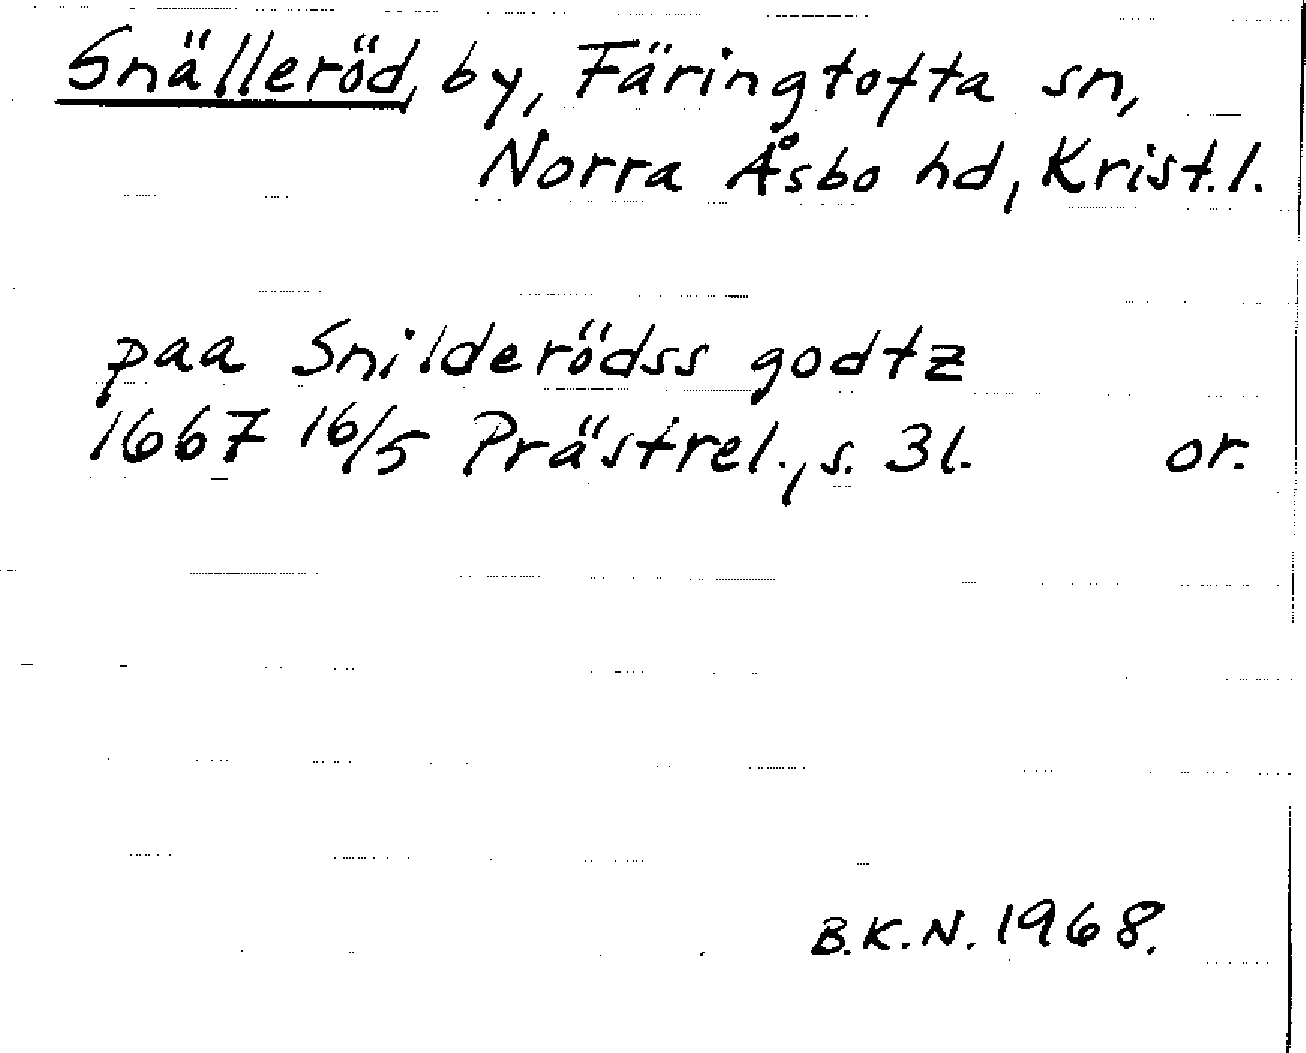 Snälleröd, by, Färingtofta sn,
Norra Åsbo hd, Krist. l.
paa Snilderödss godtz
1667 16/5 Prästrel., s. 31. or.
B.K.N. 1968.